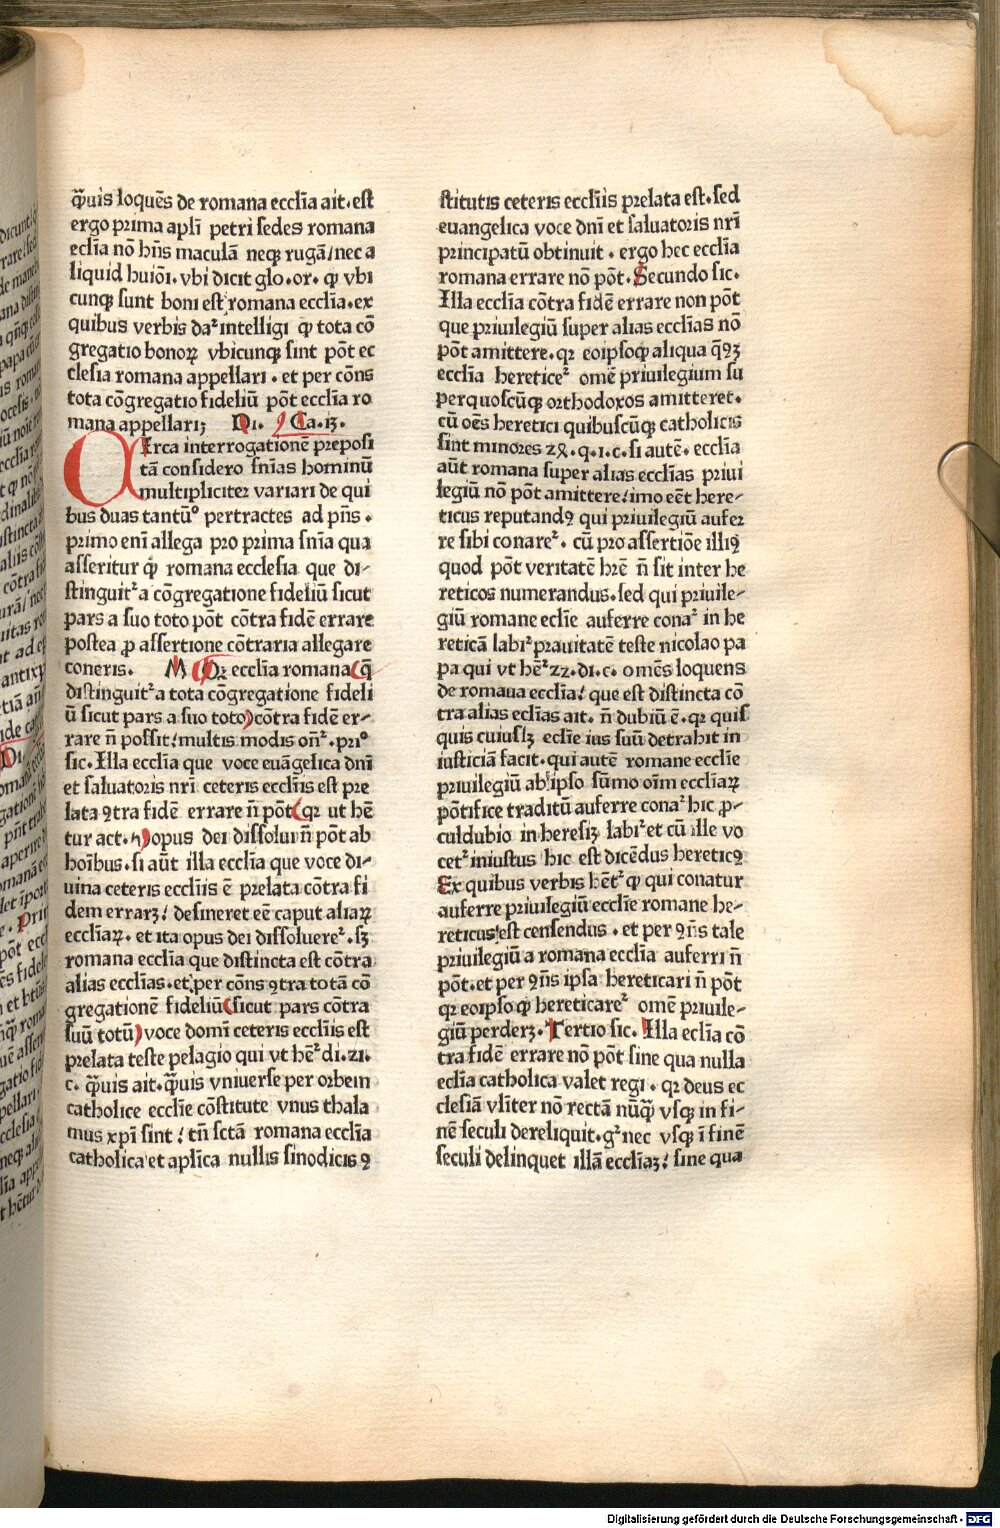 q̄uis loquēs de romana eccl̄ia ait. est
ergo prima apl̄i petri sedes romana
ecl̄ia nō hn̄s maculā neqꝫ rugā/ nec a
liquid huiōi. vbi dicit glo. or. ꝙ vbi
cunqꝫ sunt boni est romana eccl̄ia. ex
quibus verbis daꝰ intelligi ꝙ tota cō
gregatio bonoꝝ vbicunqꝫ sint pōt ec
clesia romana appellari. et per cōns
tota cōgregatio fideliū pōt eccl̄ia ro
mana appellariꝫ Di. Ca. 13.
CIrca interrogationē preposi
tā considero sn̄ias hominū
multipliciter variari de qui
bus duas tantūº pertractes ad pn̄s.
primo eni allega pro prima sn̄ia qua
asseritur ꝙ romana ecclesia que di-
stinguitꝰ a cōgregatione fideliū sicut
pars a suo toto pōt cōtra fidē errare
postea ꝓ assertione cōtraria allegare
coneris. M Qꝛ eccl̄ia romana q̄
distinguitꝰ a tota cōgregatione fideli
ū sicut pars a suo toto) cōtra fidē er-
rare n̄ possit: multis modis on̄ꝰ. priº
sic. Illa eccl̄ia que voce euāgelica dn̄i
et saluatoris nr̄i ceteris eccl̄iis est pre
lata ꝯtra fidē errare n̄ pōt( qꝛ ut hē
tur act. 5) opus dei dissolui n̄ pōt ab
hoībus. si aūt illa eccl̄ia que voce di-
uina ceteris eccl̄iis ē prelata cōtra fi
dem errarꝫ: desineret eē caput aliaꝝ
eccl̄iaꝝ. et ita opus dei dissolueretꝰ. sꝫ
romana eccl̄ia que distincta est cōtra
alias eccl̄ias. et per cōns ꝯtra totā cō
gregationē fideliū( sicut pars cōtra
suū totū) voce domi ceteris eccl̄iis est
prelata teste pelagio qui vt hēꝰ di. 21.
c. q̄uis ait. q̄uis vniuerse per orbem
catholice eccl̄ie cōstitute vnus thala
mus xp̄i sint: tn̄ sctā romana eccl̄ia
catholica et apl̄ica nullis sinodicis ꝯ
stitutis ceteris eccl̄iis prelata est. sed
euangelica voce dn̄i et saluatoris nr̄i
principatū obtinuit. ergo hec eccl̄ia
romana errare nō pōt. Secundo sic.
Illa eccl̄ia cōtra fidē errare non pōt
que priuilegiū super alias eccl̄ias nō
pōt amittere. qꝛ eoipsoqꝫ aliqua q̄ꝯꝫ
eccl̄ia hereticeꝰ omē priuilegium su
per quoscūqꝫ orthodoxos amitteret.
cū oēs heretici quibuscūqꝫ catholicis
sint minores 24. q. 1. c. si autē. eccl̄ia
aūt romana super alias eccl̄ias priui
legiū nō pōt amittere: imo eēt here-
ticus reputandꝰ qui priuilegiū aufer
re sibi conareꝰ. cū pro assertiōe illiꝰ
quod pōt veritatē hr̄e n̄ sit inter he
reticos numerandus. sed qui priuile-
giū romane ecl̄ie auferre conaꝰ in he
reticā labiꝰ prauitatē teste nicolao pa
pa qui vt hēꝰ 22. di. c. omēs loquens
de romana eccl̄ia: que est distincta cō
tra alias ecl̄ias ait. n̄ dubiū ē. qꝛ quis
quis cuiuslꝫ ecl̄ie ius suū detrahit in
iusticiā facit. qui autē romane eccl̄ie
priuilegiū ab ipso sūmo oīm eccl̄iaꝝ
pōtifice traditū auferre conaꝰ hic ꝓ-
culdubio in heresiꝫ labiꝰ et cū ille vo
cetꝰ iniustus hic est dicēdus hereticꝰ
Ex quibus verbis hētꝰ ꝙ qui conatur
auferre priuilegiū eccl̄ie romane he-
reticus est censendus. et per ꝯn̄s tale
priuilegiū a romana eccl̄ia auferri n̄
pōt. et per ꝯn̄s ipsa hereticari n̄ pōt
qꝛ eoipso ꝙ hereticareꝰ omē priuile-
giū perderꝫ. Tertio sic. Illa ecl̄ia cō
tra fidē errare nō pōt sine qua nulla
ecl̄ia catholica valet regi. qꝛ deus ec
clesiā vl̄iter nō rectā nūq̄ vsqꝫ in fi-
nē seculi dereliquit. gꝰ nec vsqꝫ ī finē
seculi delinquet illā eccl̄iaꝫ: sine qua
Digitalisierung gefördert durch die Deutsche Forschungsgemeinschaft - DFG